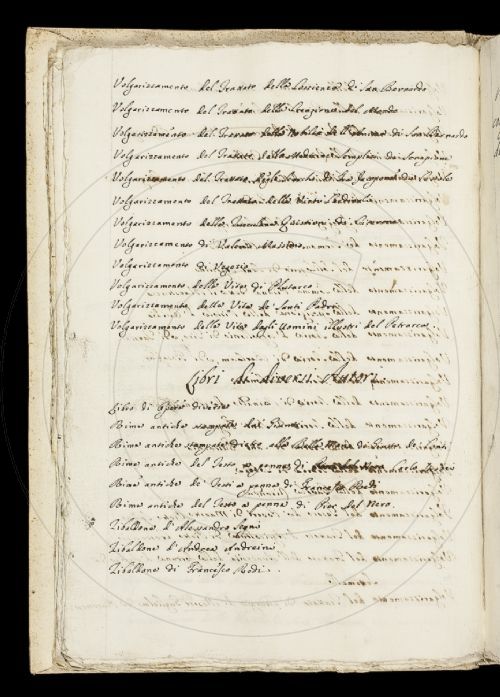 Volgarizzamento del Trattato della Coscienza di San Bernardo
Volgarizzamento del Trattato della Creazione del Mondo
Volgarizzamento del Trattato della Nobiltà dell'Anima di San Bernardo
Volgarizzamento del Trattato delle Medicine Semplici di Serapione
Volgarizzamento del Trattato degli
Volgarizzamento del Trattato delle Virtù Cardinali
Volgarizzamento delle Tusculane Quistioni di Cicerone
Volgarizzamento di Valerio Massimo
Volgarizzamento di Vegezio
Volgarizzamento delle Vite di Plutarco
Volgarizzamento delle Vite de' Santi Padri
Volgarizzamento delle Vite degli Uomini illustri del Petrarca
Libri di diversi Autori
Libro di Opere diverse
Rime antiche stampate dai Giunti
Rime antiche stampate dietro alla Bella Mano di Giusto de' Conti
Rime antiche del Testo a penna di
Rime antiche de' Testi a penna di Francesco Redi
Rime antiche del Testo a penna di Pier del Nero
Zibaldone d'Alessandro Segni
Zibaldone d'Andrea Andreini
Zibaldone di Francesco Redi